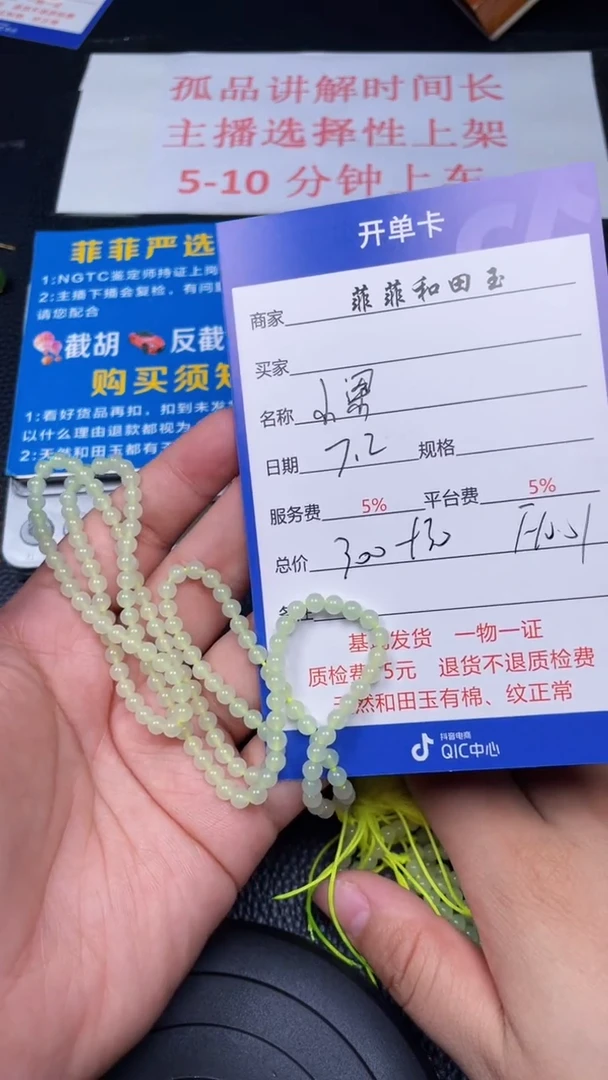 孤品讲解时间长
主播选择性上架
5-10 分钟上车
菲菲严选
1:NGTC鉴定师持证上岗
2:主播下播会复检，有问
请您配合
截胡 反截
购买须知
1:看好货品再扣，扣到未发
以什么理由退款都视为
2:天然和田玉都有
开单卡
商家 菲菲和田玉
买家
名称 小梁
日期 7.2 规格
服务费 5% 平台费 5%
总价 300
发货 一物一证
质检费 5元 退货不退质检费
然和田玉有棉、纹正常
抖音电商
QIC中心